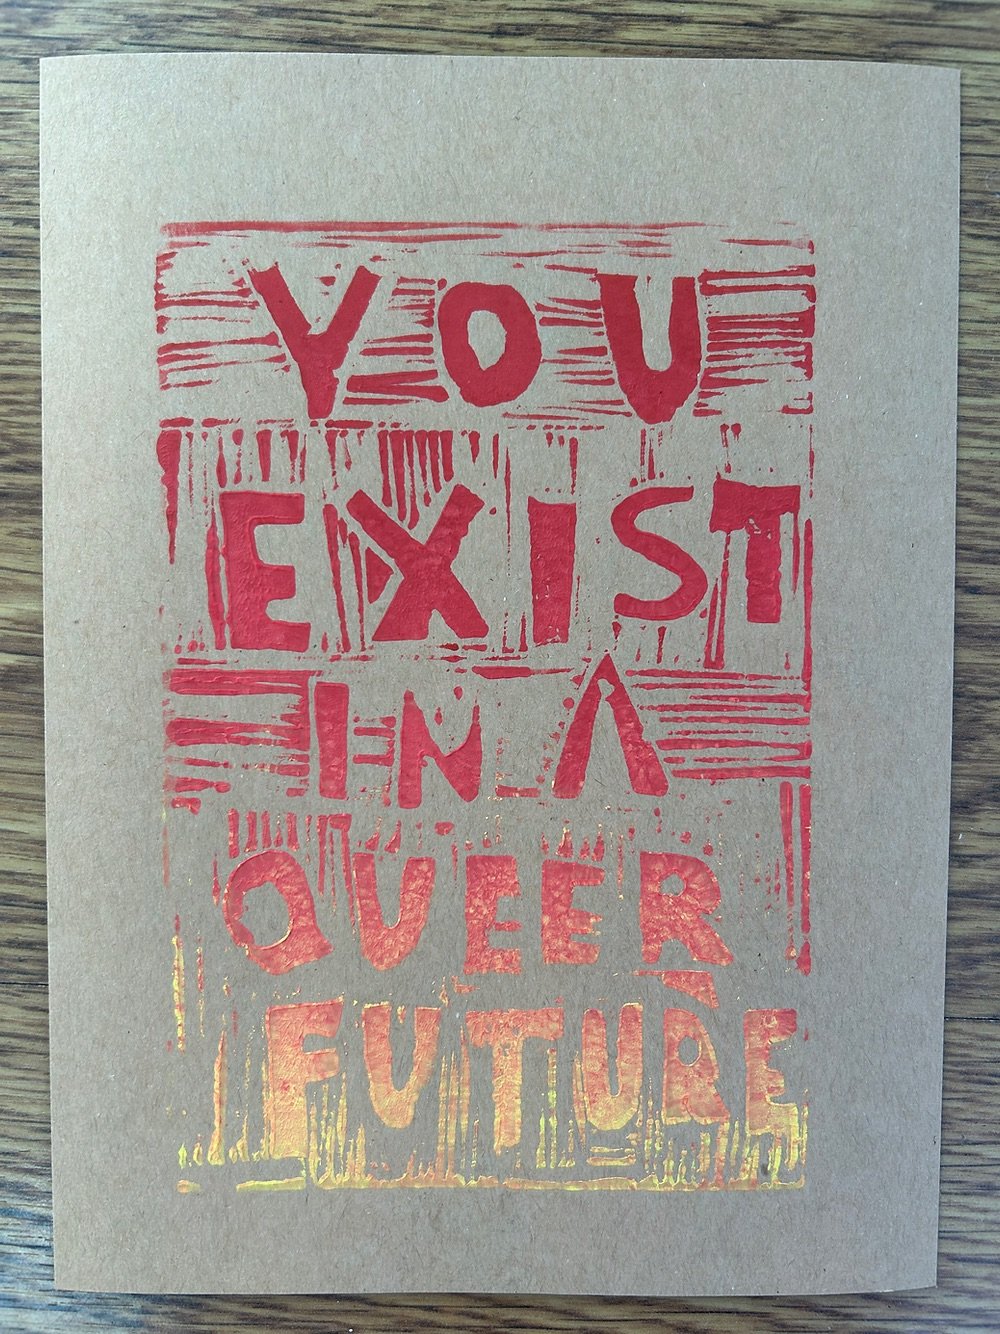 YOU
EXIST
IN A
QUEER
FUTURE